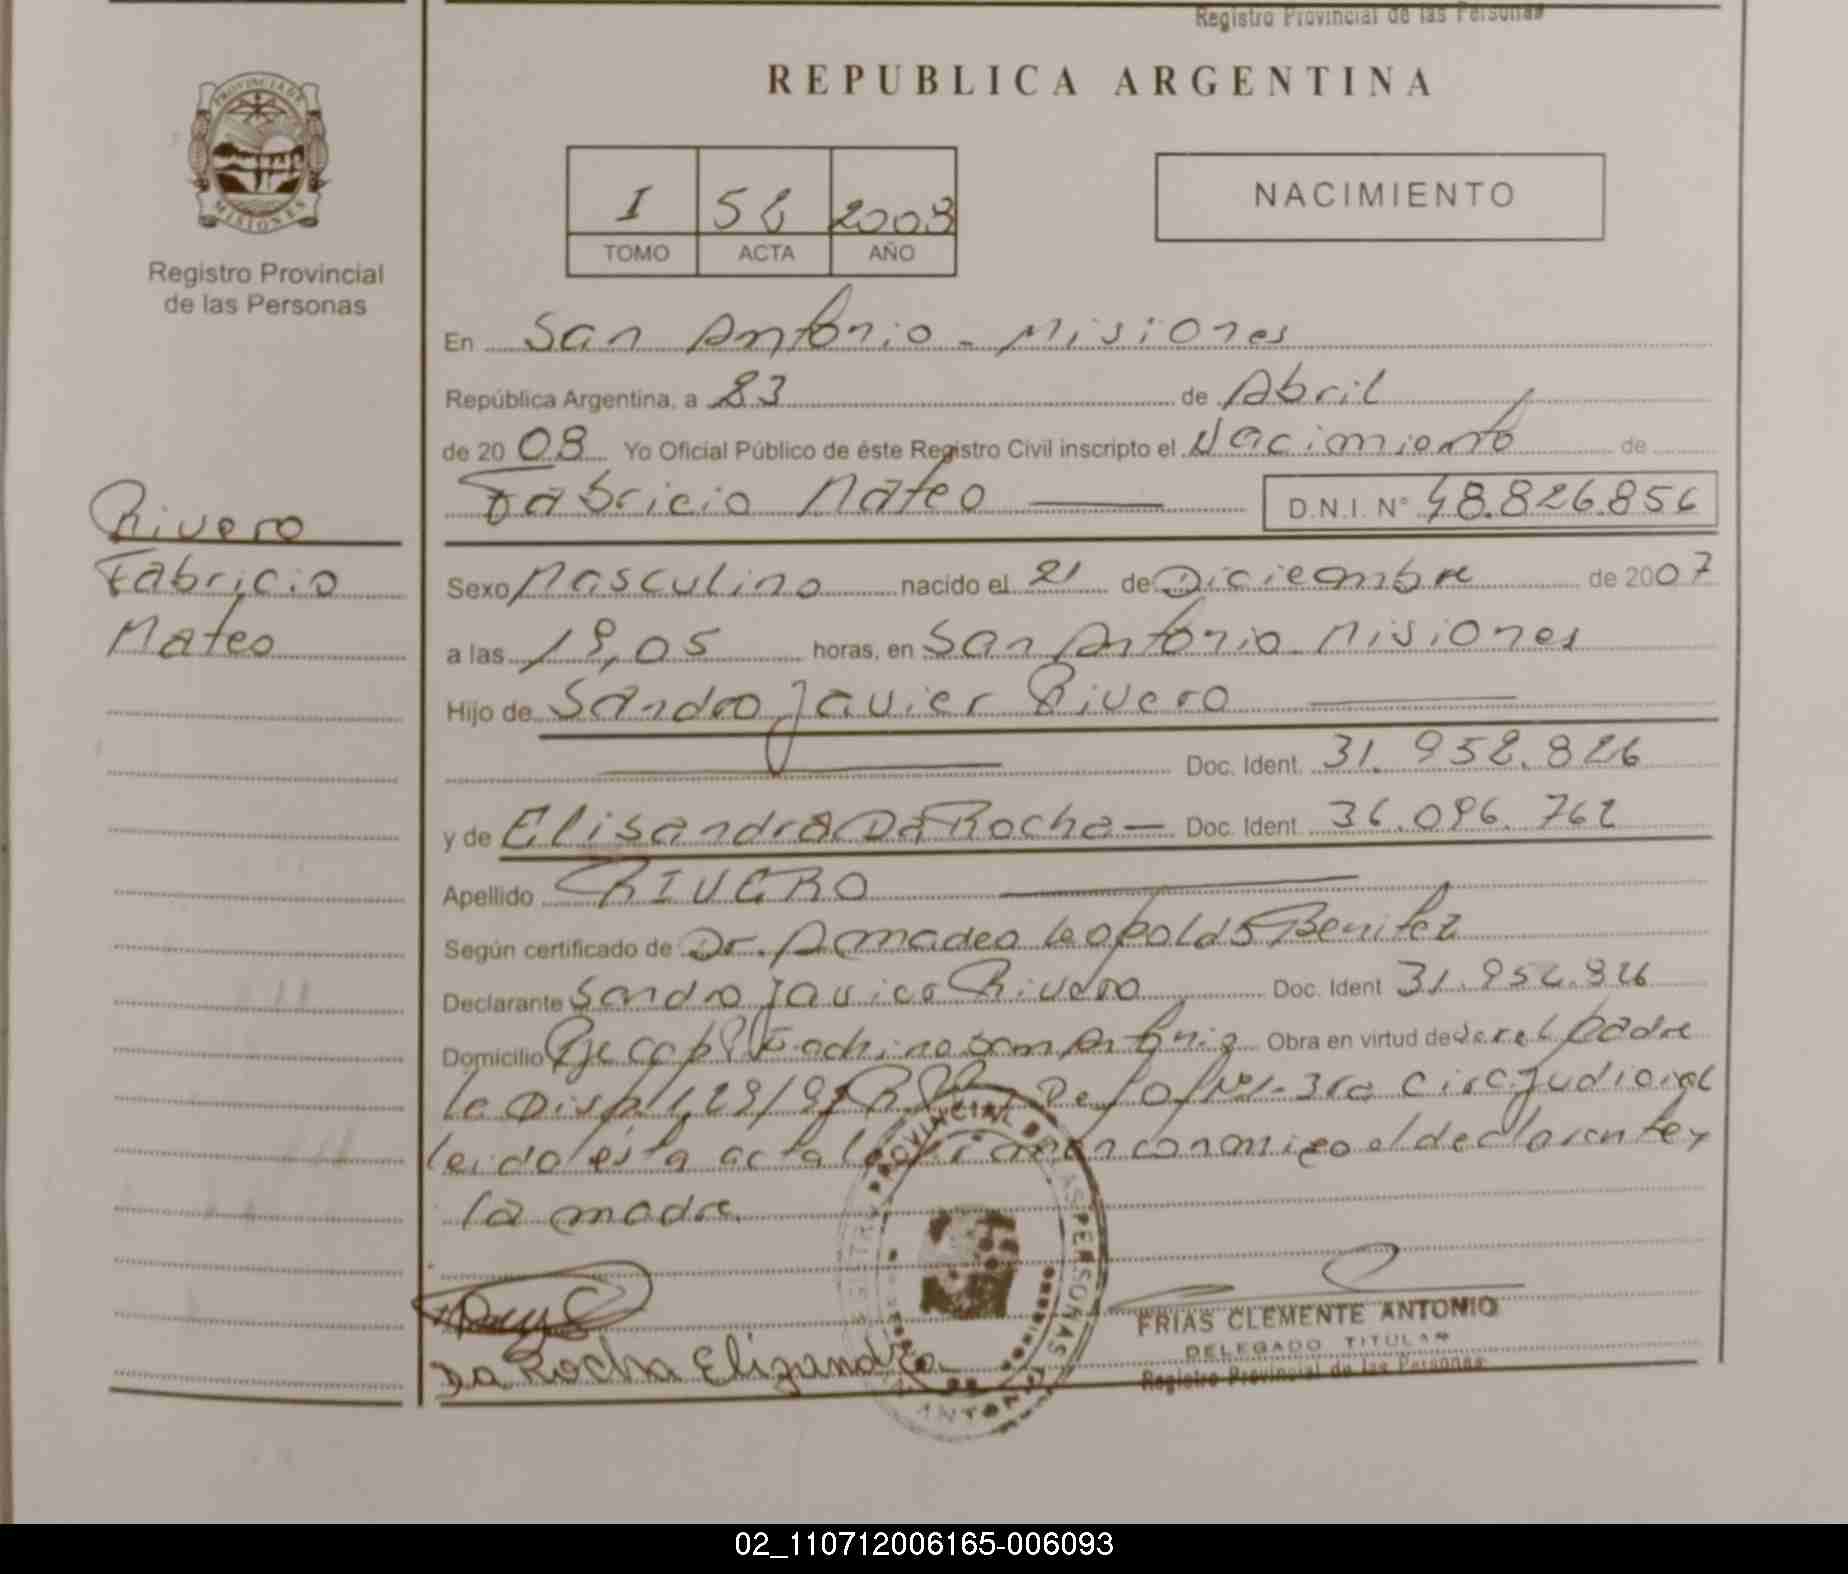 Registro Provincial de las Personas
REPUBLICA ARGENTINA
PROVINCIA DE
MISIONES
Registro Provincial
de las Personas
I 58 2008
TOMO ACTA AÑO
NACIMIENTO
En San Antonio - Misiones
República Argentina, a 23 de Abril
de 20 08 Yo Oficial Público de éste Registro Civil inscripto el Nacimiento de
Fabricio Mateo D.N.I. N° 48.826.856
Rivero
Fabricio
Mateo
Sexo Masculino nacido el 21 de Diciembre de 2007
a las 19,05 horas, en San Antonio Misiones
Hijo de Sandro Javier Rivero
Doc. Ident. 31.952.826
y de Elisandra Da Rocha — Doc. Ident 36.096.762
Apellido RIVERO
Según certificado de Dr. Amadeo Leopoldo Benitez
Declarante Sandro Javier Rivero Doc. Ident 31.952.826
Domicilio San Antonio Obra en virtud de ser el padre
la Disp 1,29/97 De fo/ Nº1- 3ra Circ. Judicial
leido ésta acta la firman conmigo el declarante y
la madre.
Da Rocha Elizandra
PROVINCIAL DE LAS PERSONAS
ANTONIO
FRIAS CLEMENTE ANTONIO
DELEGADO TITULAR
Registro Provincial de las Personas
02_110712006165-006093